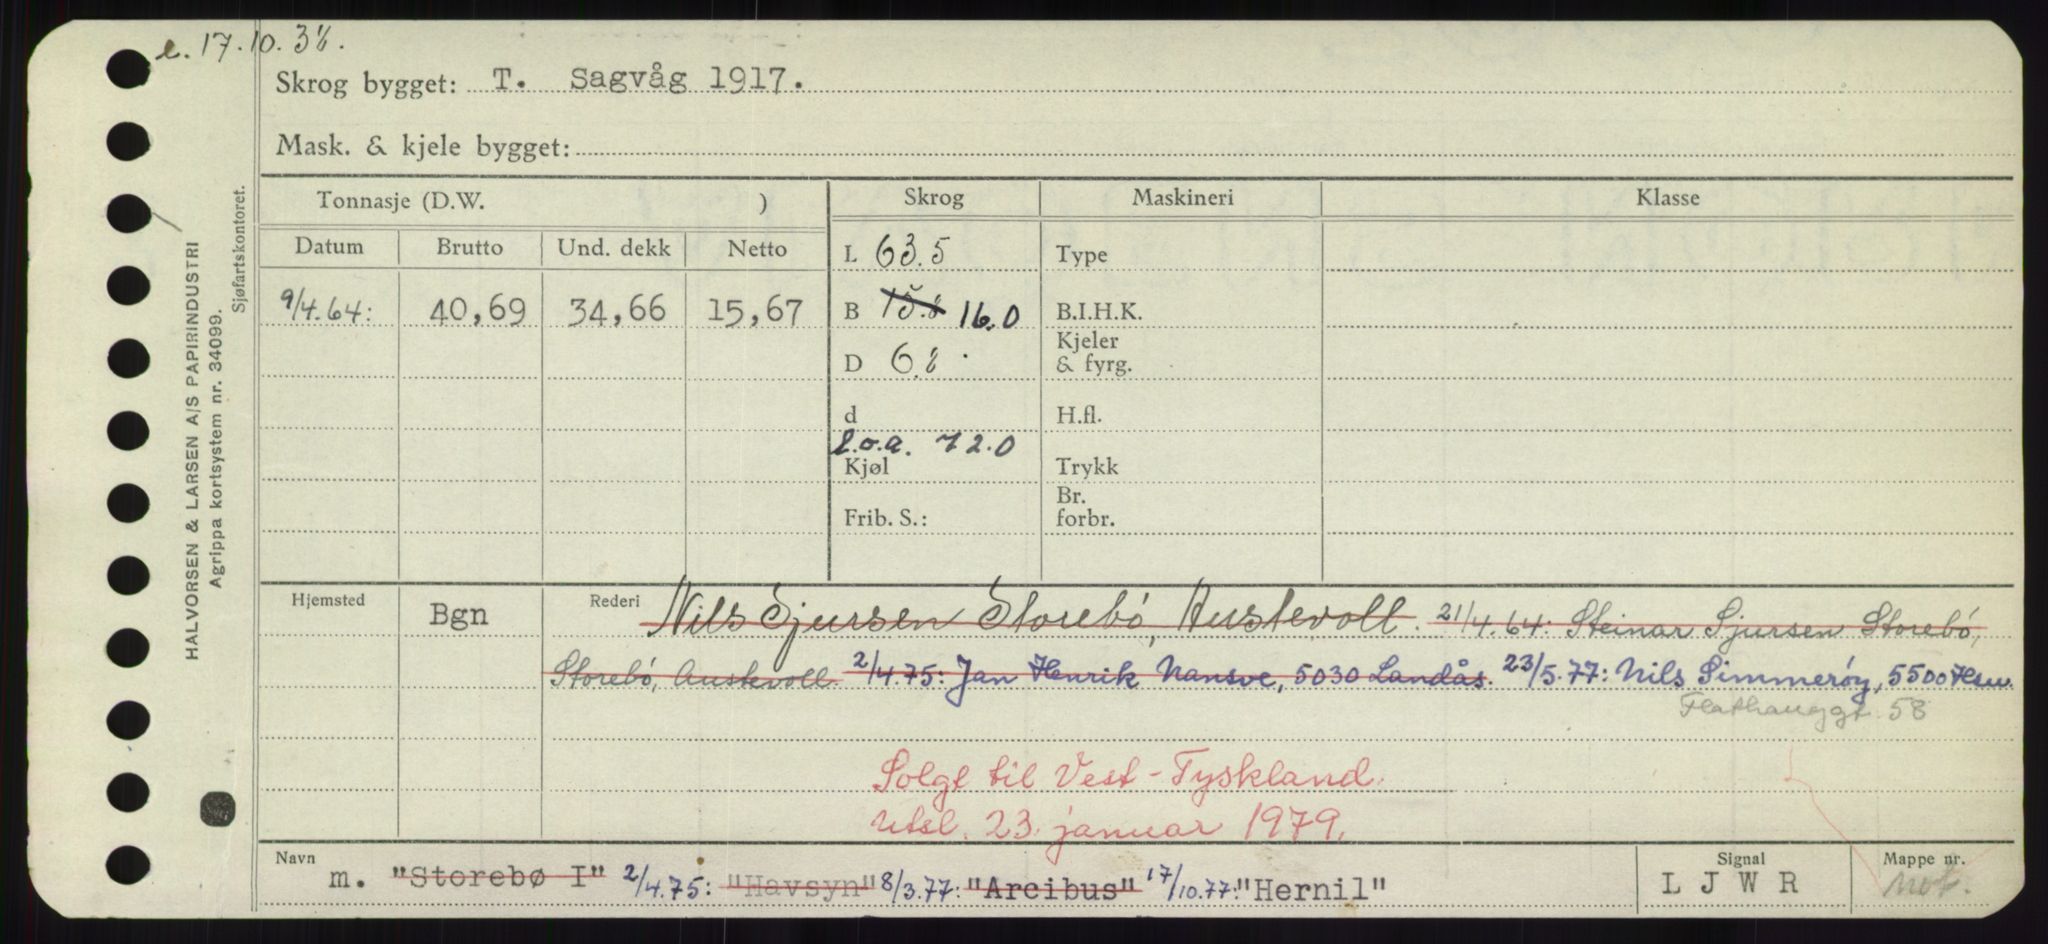 e. 17.10.38.
Skrog bygget: T. Sagvåg 1917.
Mask. & kjele bygget:
Tonnasje (D.W. )
Skrog
Maskineri
Klasse
Datum Brutto Und. dekk Netto
L 63.5
Type
9/4.64: 40,69 34,66 15,67
B 15.8 16.0
B.I.H.K.
Kjeler
D 6.8
& fyrg.
d
H.fl.
l.o.a. 72.0
Kjøl
Trykk
Br.
Frib. S.:
forbr.
Hjemsted Bgn
Rederi Nils Sjursen Storebø, Austevoll. 21/4.64: Steinar Sjursen Storebø,
Storebø, Austevoll. 2/4.75: Jan Henrik Nansve, 5030 Landås. 23/5.77: Nils Simmerøy, 5500 Hsu.
Flathauggt. 58
Solgt til Vest-Tyskland.
Utsl. 23. januar 1979.
Navn
Signal
Mappe nr.
m. "Storebø I" 2/4.75: "Havsyn" 8/3.77: "Arcibus" 17/10.77: "Hernil"
L J W R
mot.
HALVORSEN & LARSEN A/S PAPIRINDUSTRI
Agrippa kortsystem nr. 34099.
Sjøfartskontoret.